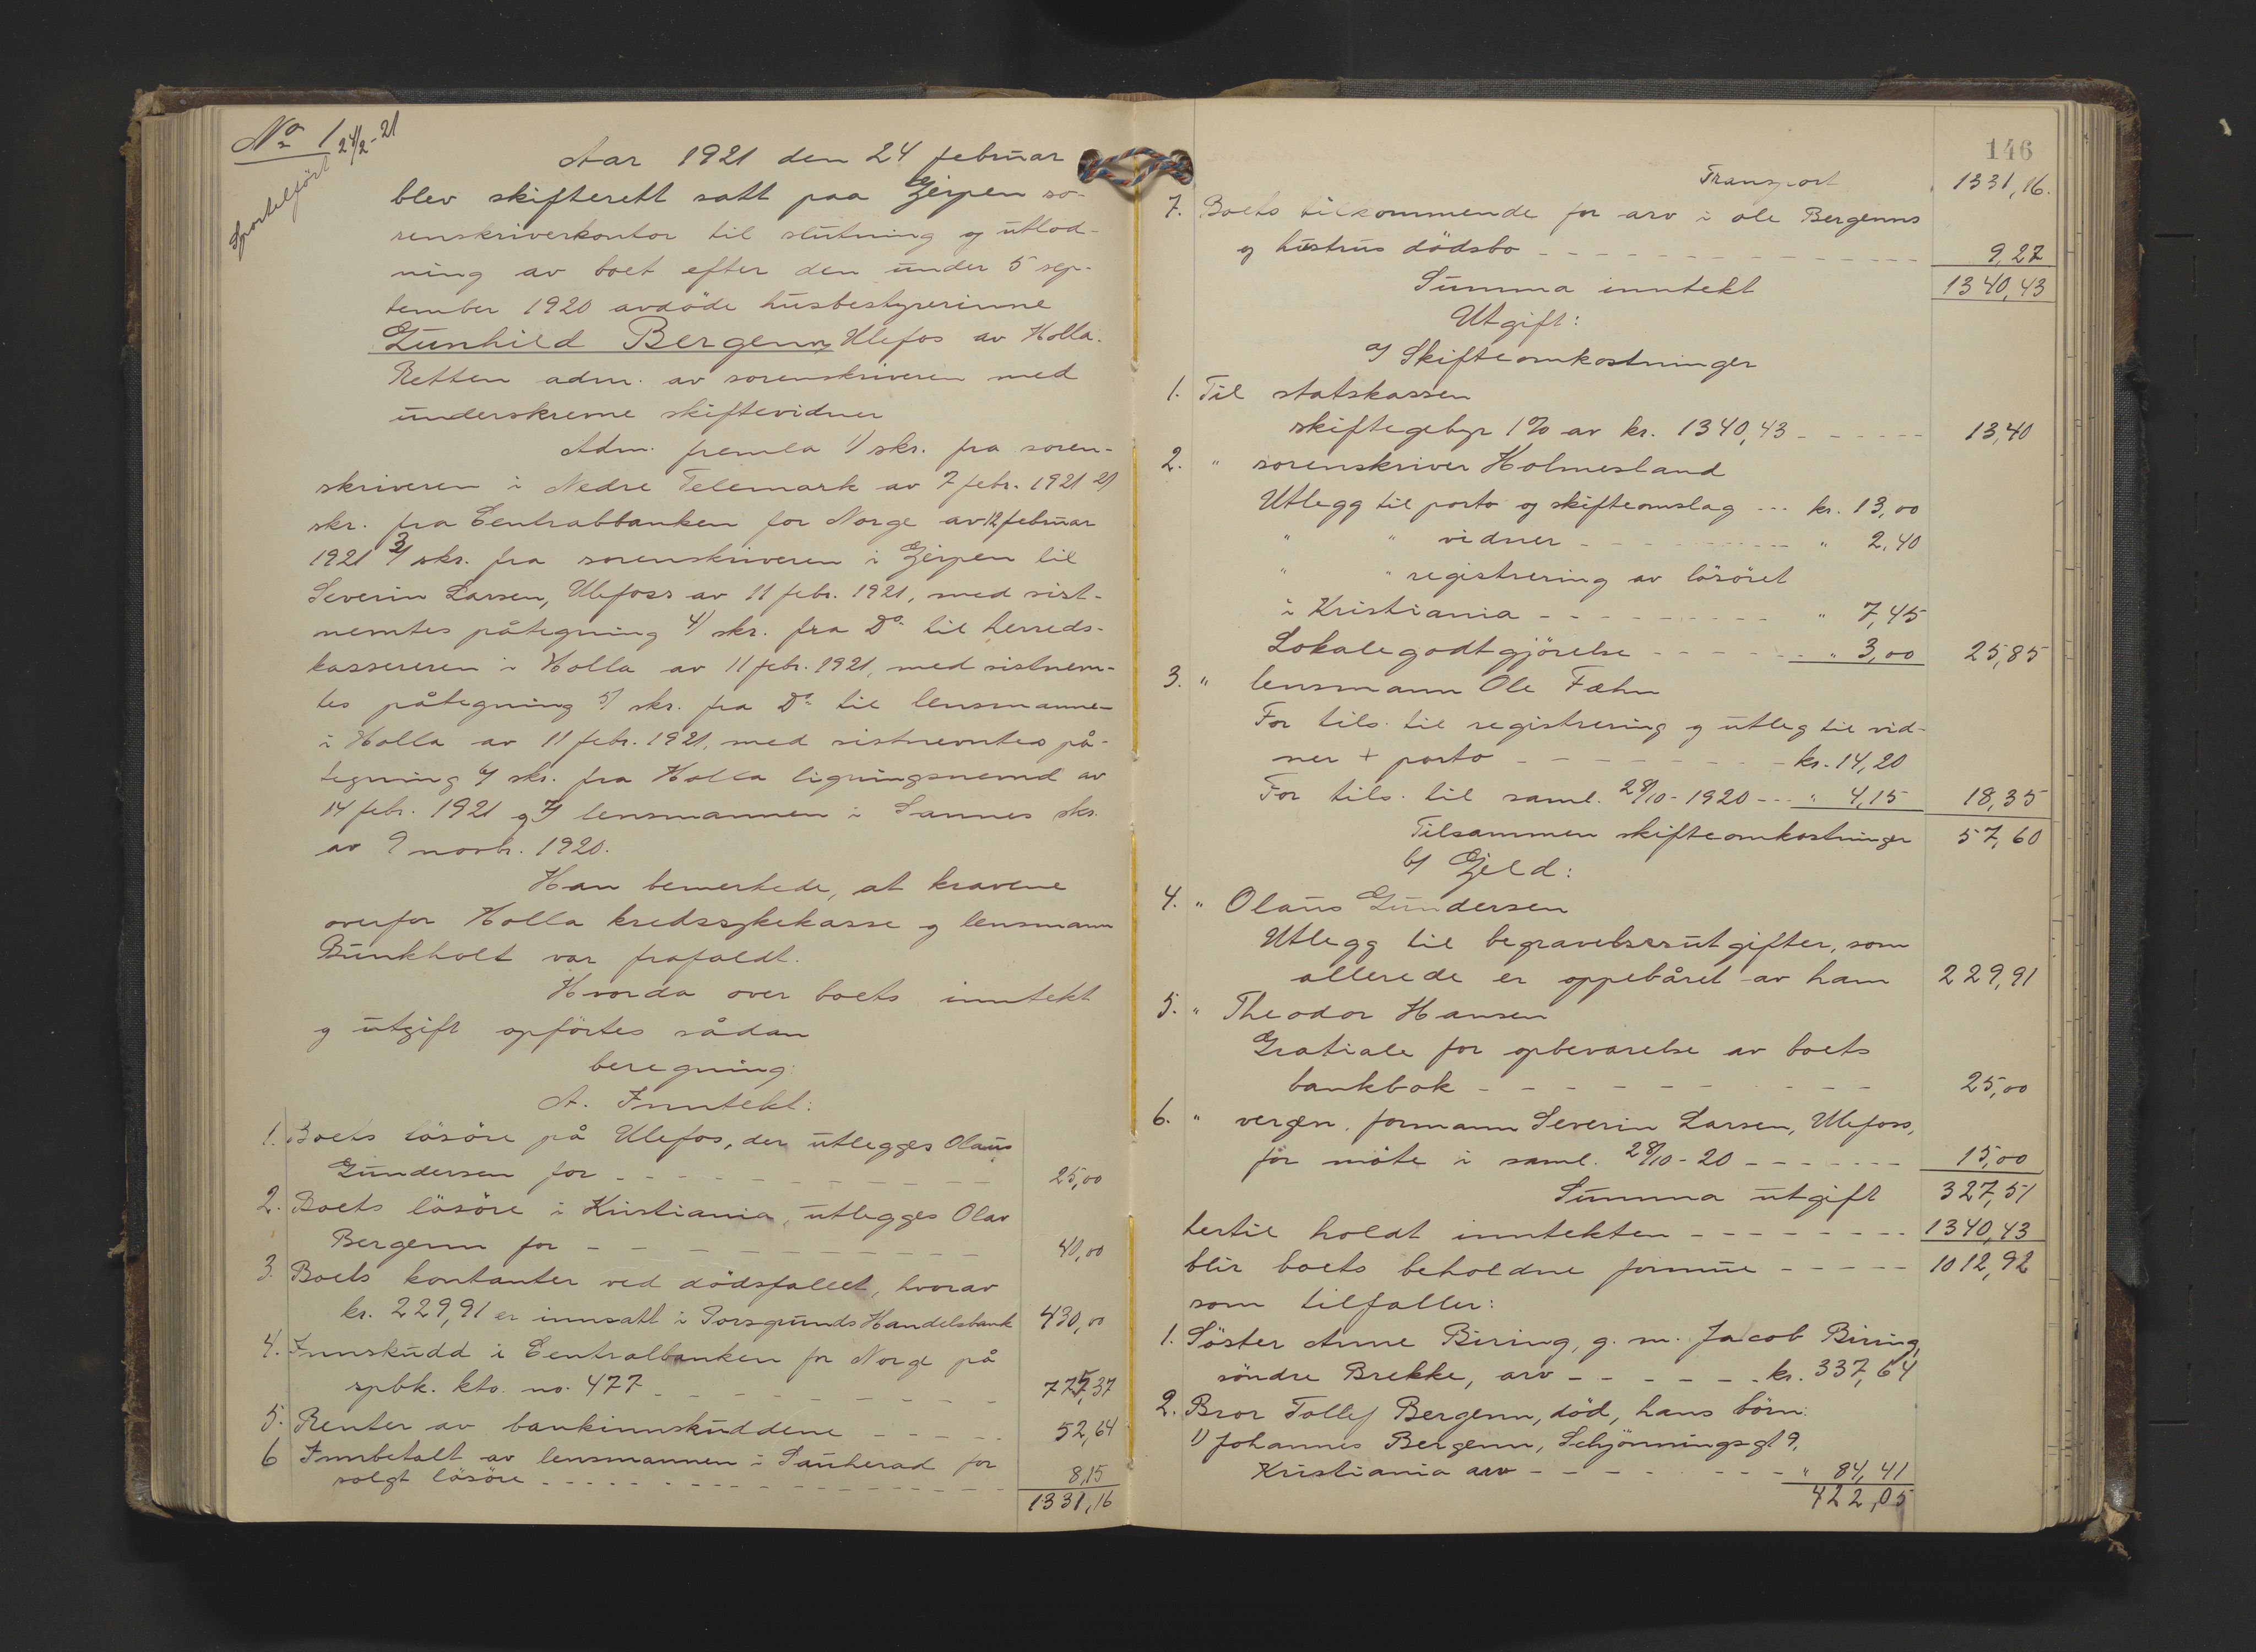 No 1 24/2-21
Sportelført
Aar 1921 den 24 februar
blev skifterett satt paa Gjerpen so-
renskriverkontor til slutning og utlod-
ning av boet efter den under 5 sep-
tember 1920 avdöde husbestyrerinne
Gunhild Bergenn, Ulefos av Holla.
Retten adm. av sorenskriveren med
underskrevne skiftevidner
Adm. fremla 1) skr. fra soren-
skriveren i Nedre Telemark av 7 febr. 1921 2)
skr. fra Centralbanken for Norge av 12 februar
1921 3) skr. fra sorenskriveren i Gjerpen til
Severin Larsen, Ulefoss av 11 febr. 1921, med sist-
nemtes påtegning 4) skr. fra Do til herreds-
kassereren i Holla av 11 febr. 1921, med sistnem-
tes påtegning 5) skr. fra Do til lensmannen
i Holla av 11 febr. 1921, med sistnevntes på-
tegning 6) skr. fra Holla ligningsnemd av
14 febr. 1921 og 7) lensmannen i Sannes skr.
av 9 novbr. 1920.
Han bemerkede, at kravene
overfor Holla kredssykekasse og lensmann
Bunkholt var frafaldt.
Hvorda over boets inntekt
og utgift opförtes sådan
beregning:
A. Inntekt:
1. Boets lösöre på Ulefos, der utlegges Olaus
Gundersen for 25,00
2. Boets lösöre i Kristiania, utlegges Olav
Bergenn for 40,00
3. Boets kontanter ved dödsfallet, hvorav
kr. 229,91 er innsatt i Porsgrunds Handelsbank 430,00
4. Innskudd i Centralbanken for Norge på
spbk. kto. no. 477 775,37
5. Renter av bankinnskuddene 52,64
6 Innbetalt av lensmannen i Sauherad for
solgt lösöre 8,15
1331,16
146
Transport 1331,16.
7. Boets tilkommende for arv i Ole Bergenns
og hustrus dödsbo 9,27
Summa inntekt 1340,43
Utgift:
a) Skifteomkostninger
1. Til statskassen
skiftegebyr 1% av kr. 1340,43 13,40
2. " sorenskriver Holmesland
Utlegg til porto og skifteomslag kr. 13,00
" " vidner " 2,40
" " registrering av lösöret
i Kristiania " 7,45
Lokalegodtgjörelse " 3,00 25,85
3. " lensmann Ole Fæhn
For tils. til registrering og utleg til vid-
ner + porto kr. 14,20
For tils. til saml. 28/10-1920 " 4,15 18,35
Tilsammen skifteomkostninger 57,60
b) Gjeld:
4. " Olaus Gundersen
Utlegg til begravelsesutgifter, som
allerede er oppebåret av ham 229,91
5. " Theodor Hansen
Gratiale for opbevarelse av boets
bankbok 25,00
6. " vergen, formann Severin Larsen, Ulefoss,
for möte i saml. 28/10-20 15,00
Summa utgift 327,51
hertil holdt inntekten 1340,43
blir boets beholdne formue 1012,92
som tilfaller:
1. Söster Anne Biring, g. m. Jacob Biring,
söndre Brekke, arv kr. 337,64
2. Bror Tollef Bergenn, död, hans börn:
1) Johannes Bergenn, Schjönningsgt 9,
Kristiania arv " 84,41
422,05